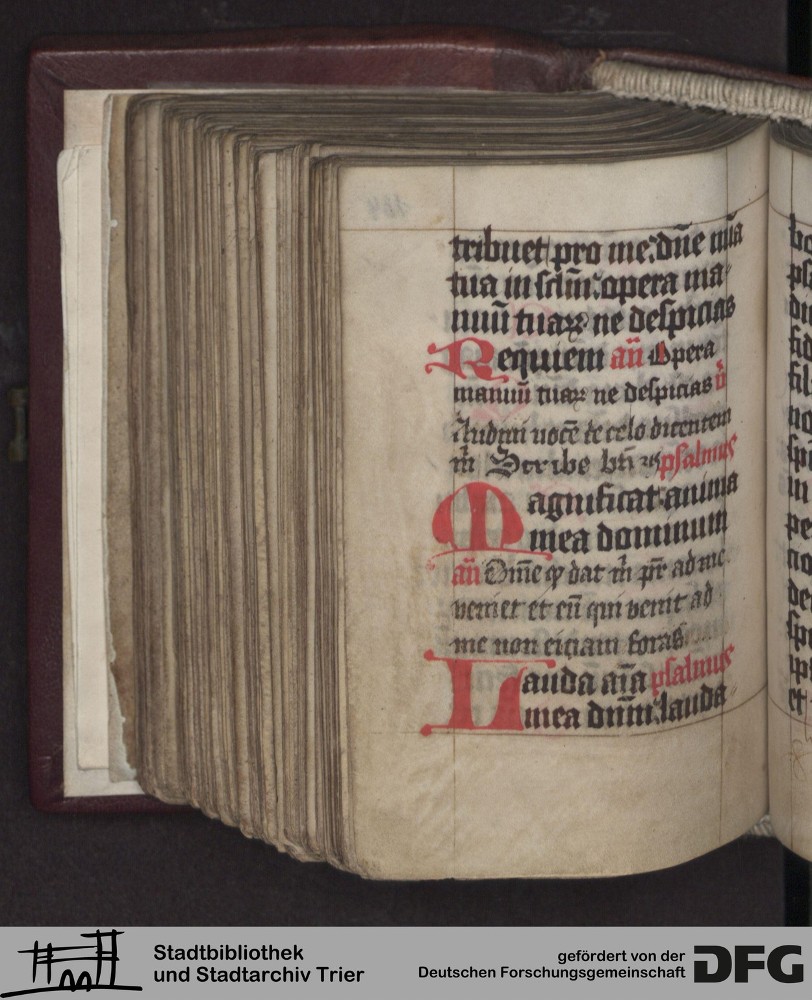 tribuet pro me: dn̄e mīa
tua in sclm̄: opera ma⸗
nuū tuaꝝ ne despicias
Requiem an̄ Opera
manuū tuaꝝ ne despicias v̉
Audiui uocē de celo dicentem
m̄ Scribe bn̄ psalmus
Magnificat anima
mea dominum
an̄ Om̄e qͥ dat m̄ pr̄ ad me
veniet et eū qui venit ad
me non eiciam foras
Lauda aīa psalmus
mea dnm̄: lauda
Stadtbibliothek
und Stadtarchiv Trier
gefördert von der
Deutschen Forschungsgemeinschaft
DFG